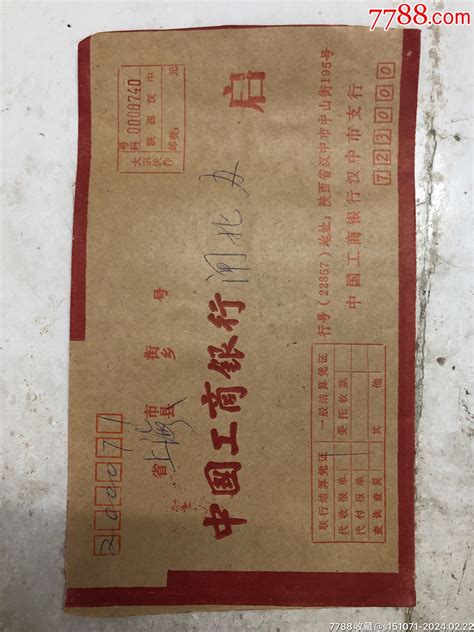 7788.com
200071
大宗邮件
号码 0000740
陕西汉中
邮费: 元
省 上海 市县 街乡 号
中国工商银行 闸北办
启
联行结算凭证
代收报单
代付报单
查询查复
一般结算凭证
委托收款
其他
行号(22857)地址:陕西省汉中市中山街195号
中国工商银行汉中市支行
723000
7788收藏@s151071-2024.02.22